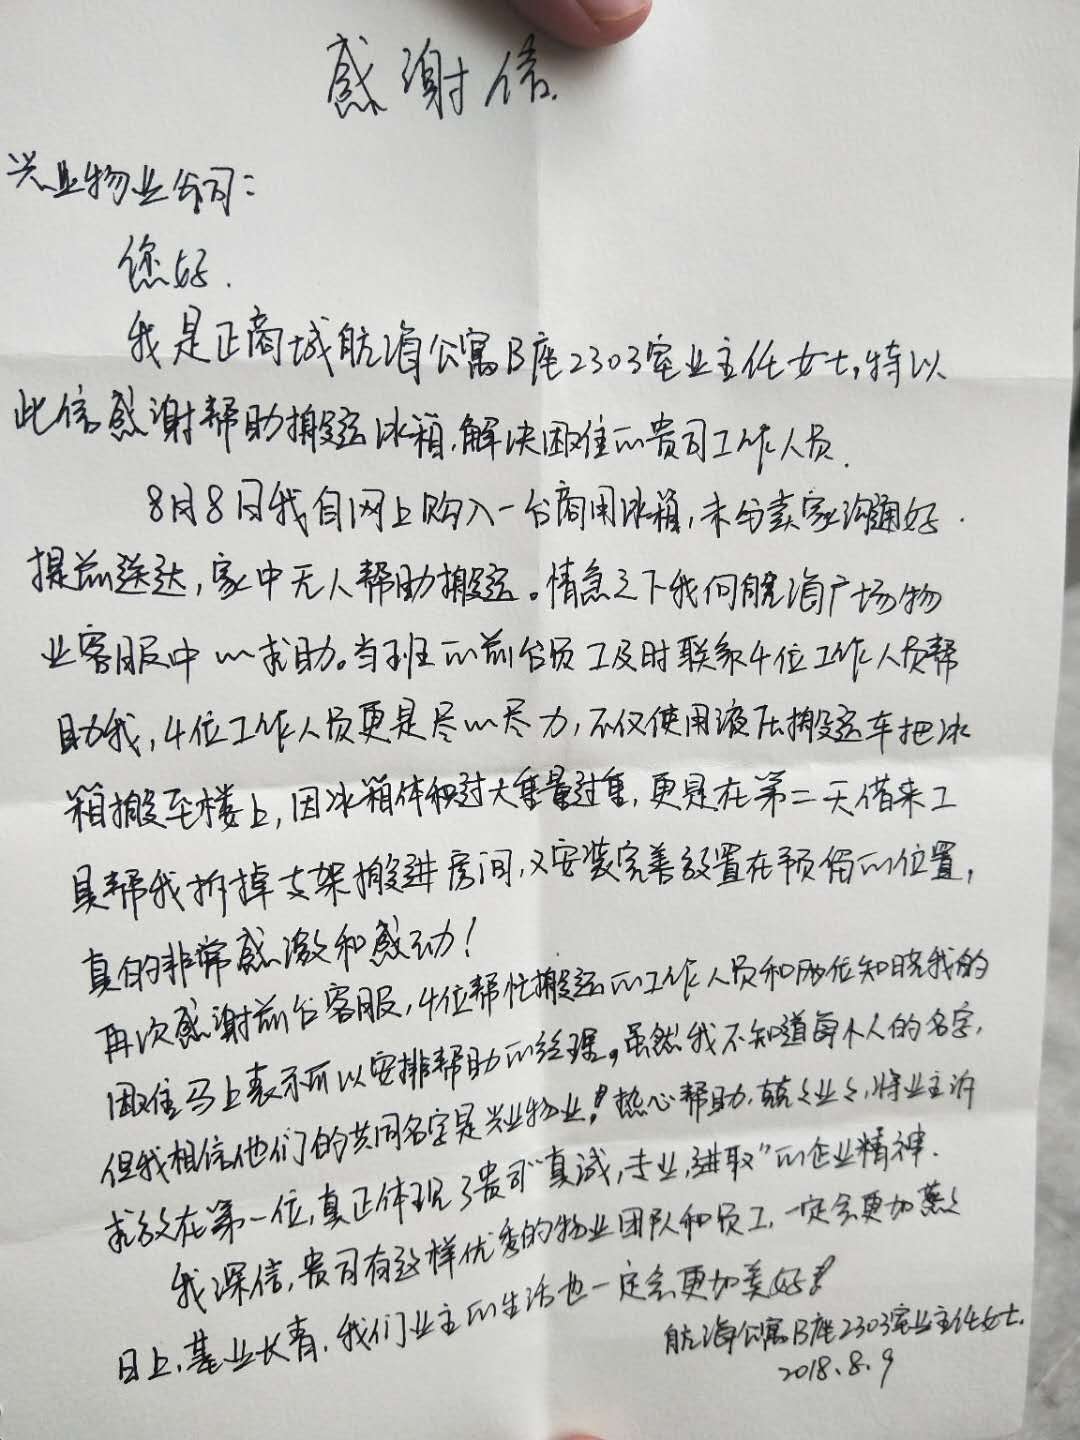 感谢信.
兴业物业公司:
您好.
我是正商城航海公寓B座2303室业主任女士,特以
此信感谢帮助搬运冰箱,解决困难的贵司工作人员.
8月8日我自网上购入一台商用冰箱,未与卖家沟通好.
提前送达,家中无人帮助搬运。情急之下我向航海广场物
业客服中心求助。当班的前台员工及时联系4位工作人员帮
助我,4位工作人员更是尽心尽力,不仅使用液压搬运车把冰
箱搬至楼上,因冰箱体积过大重量过重,更是在第二天借来工
具帮我拆掉支架搬进房间,又安装完善放置在预留的位置,
真的非常感激和感动!
再次感谢前台客服,4位帮忙搬运的工作人员和两位知晓我的
困难马上表示可以安排帮助的经理。虽然我不知道每个人的名字,
但我相信他们的共同名字是兴业物业!热心帮助,兢兢业业,将业主诉
求放在第一位,真正体现了贵司"真诚,专业,进取"的企业精神.
我深信,贵司有这样优秀的物业团队和员工,一定会更加蒸蒸
日上,基业长青,我们业主的生活也一定会更加美好!
航海公寓B座2303室业主任女士.
2018.8.9